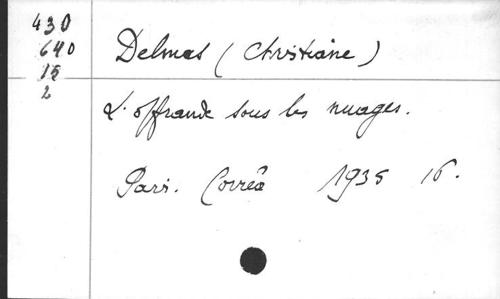 430
640
15
2
Delmas (Christiane)
L'offrande sous les nuages.
Paris. Corrêa 1935 16.